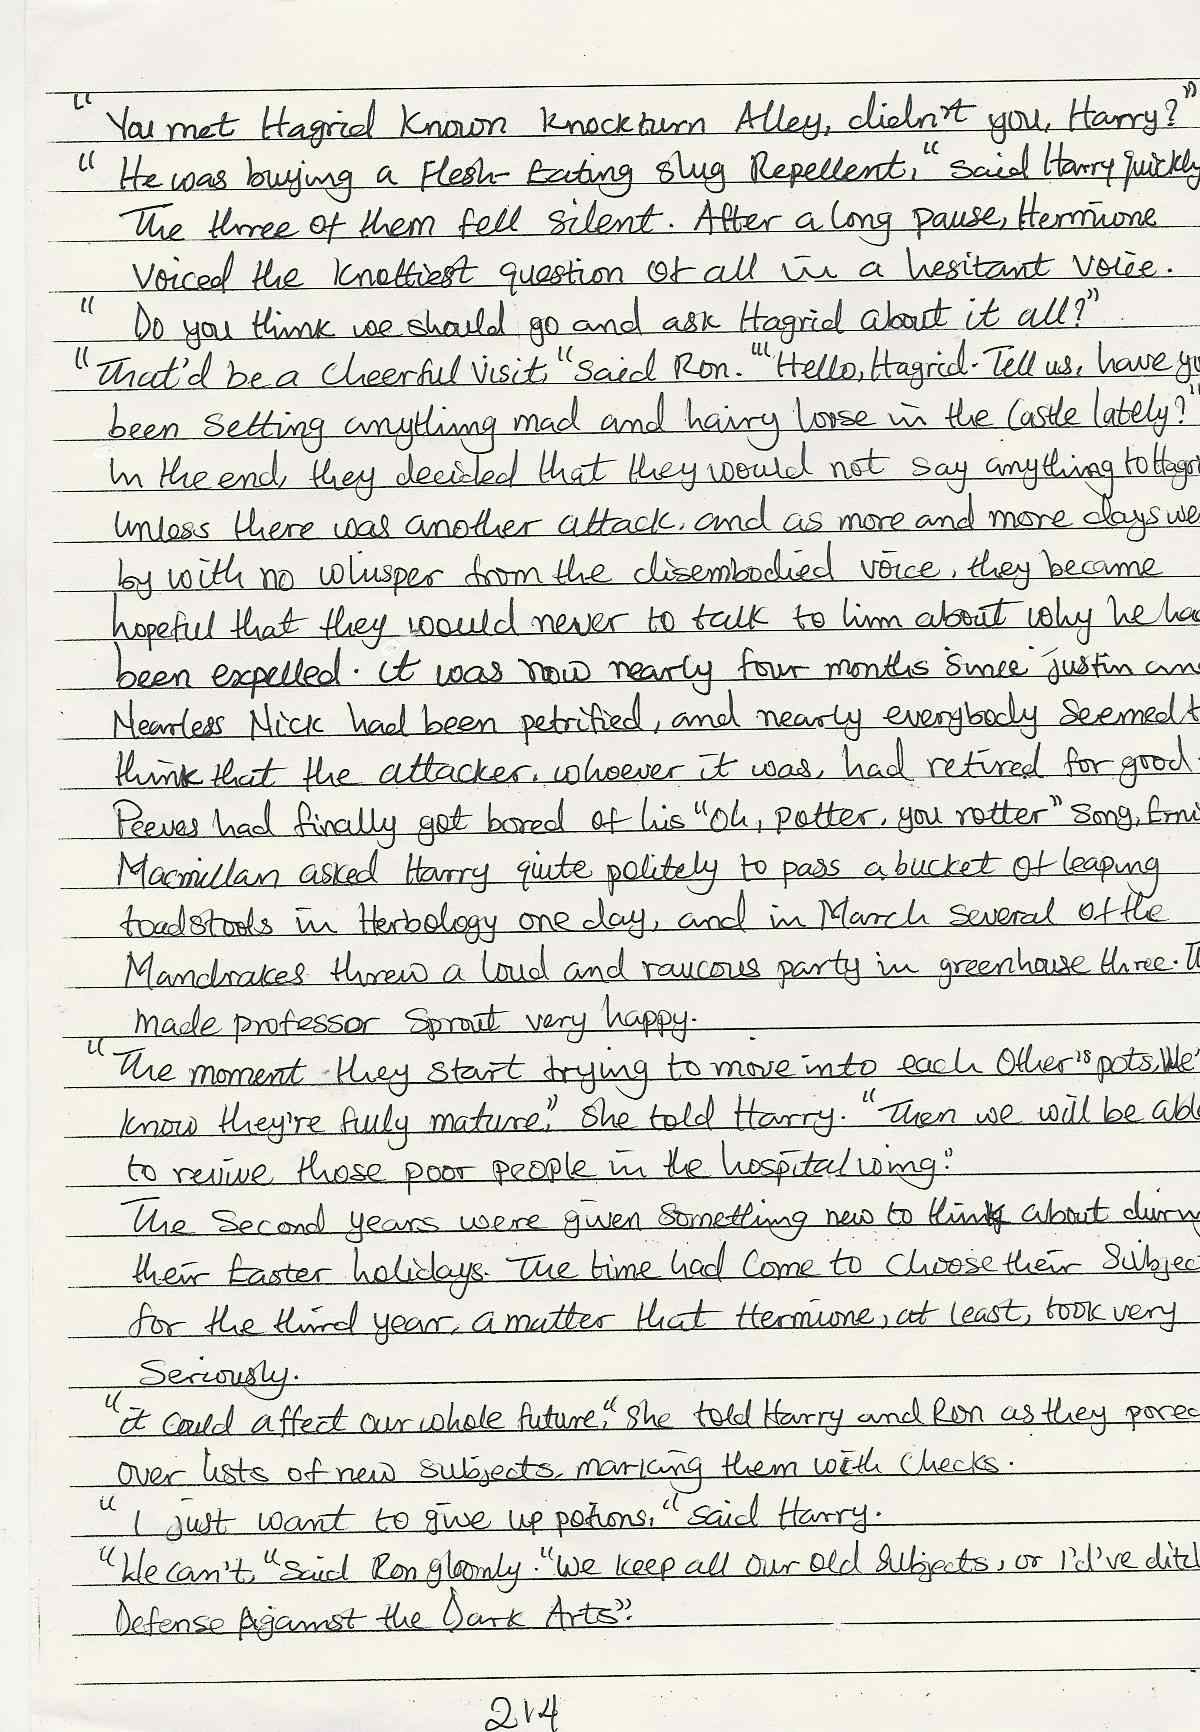 " You met Hagrid Known Knockturn Alley, didn't you, Harry?"
" He was buying a Flesh-Eating Slug Repellent," said Harry quickly
The three of them fell silent. After a long pause, Hermione
Voiced the knottiest question of all in a hesitant voice.
" Do you think we should go and ask Hagrid about it all?"
"That'd be a Cheerful Visit," said Ron. "'Hello, Hagrid. Tell us, have yo
been Setting anything mad and hairy loose in the Castle lately?"
In the end, they decided that they would not say anything to Hagri
Unless there was another attack, and as more and more days we
by with no whisper from the disembodied voice, they became
hopeful that they would never to talk to him about why he had
been expelled. it was now nearly four months since justin an
Nearless Nick had been petrified, and nearly everybody Seemed t
think that the attacker, whoever it was, had retired for good.
Peeves had finally got bored of his "Oh, potter, you rotter" Song, Erni
Macmillan asked Harry quite politely to pass a bucket of leaping
toadstools in Herbology one day, and in March several of the
Mandrakes threw a loud and raucous party in greenhouse three. T
made professor Sprout very happy.
"The moment they start trying to move into each Other's pots, We'
know they're fully mature," She told Harry. "Then we will be able
to revive those poor people in the hospital wing."
The Second years were given Something new to think about durin
their Easter holidays. The time had Come to Choose their Subjec
for the third year, a matter that Hermione, at least, took very
Seriously.
"it Could affect our whole future," She told Harry and Ron as they pored
over lists of new subjects, marking them with Checks.
" I just want to give up potions," said Harry.
"We can't," said Ron gloomly. "We keep all our old Subjects, or I'd've ditch
Defense Against the Dark Arts".
214